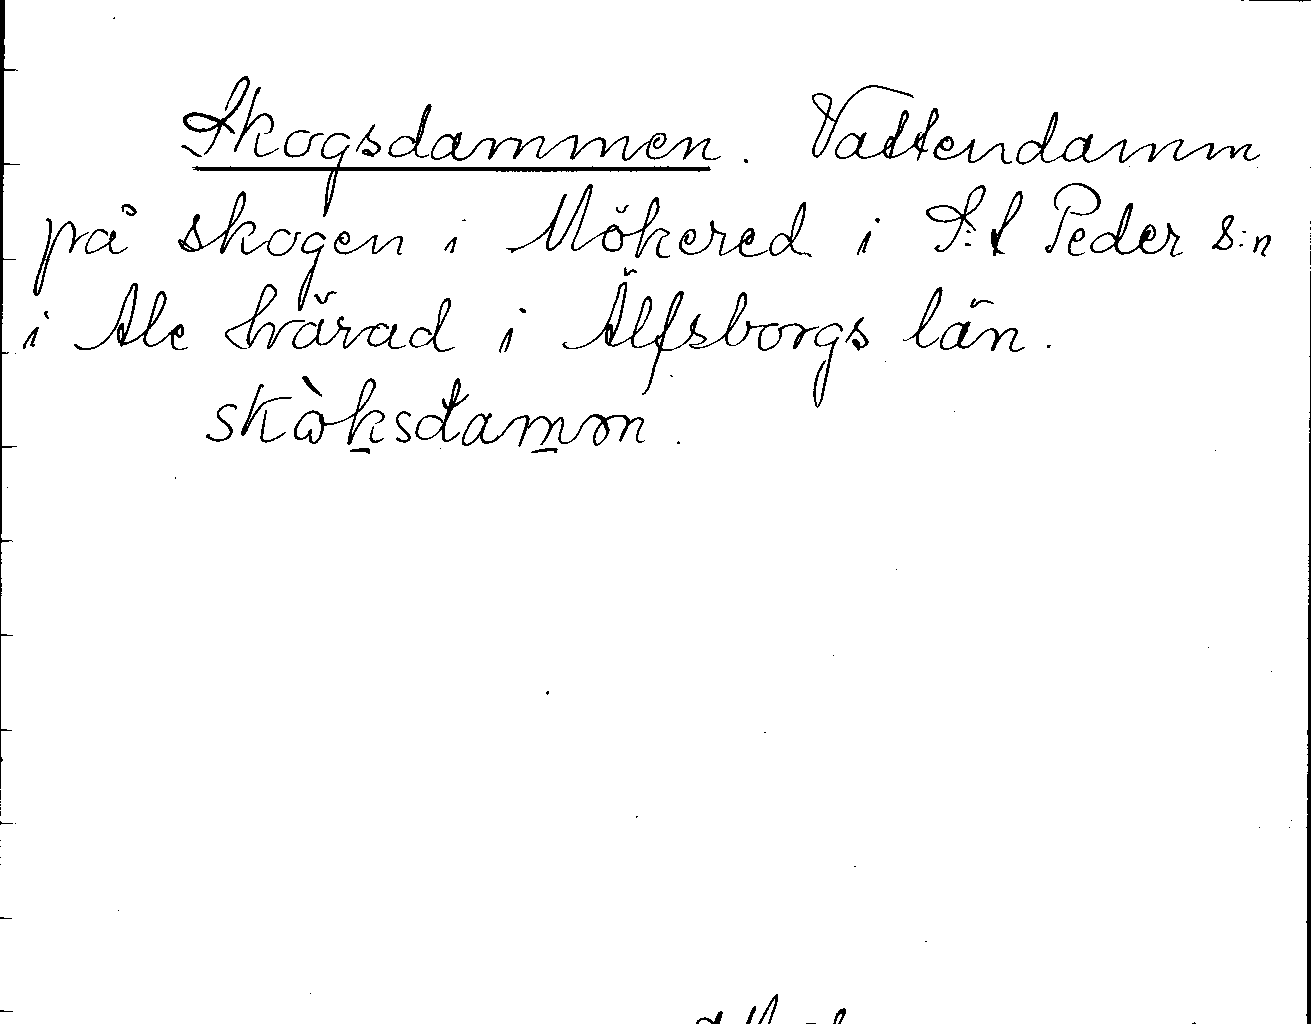 Skogsdammen. Vattendamm
på skogen i Mökered i S:t Peder s:n
i Ale härad i Älfsborgs län.
skòksdamm.